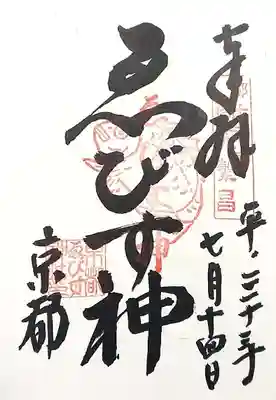 奉拝
平・二十三年
七月十四日
ゑびす神
京都